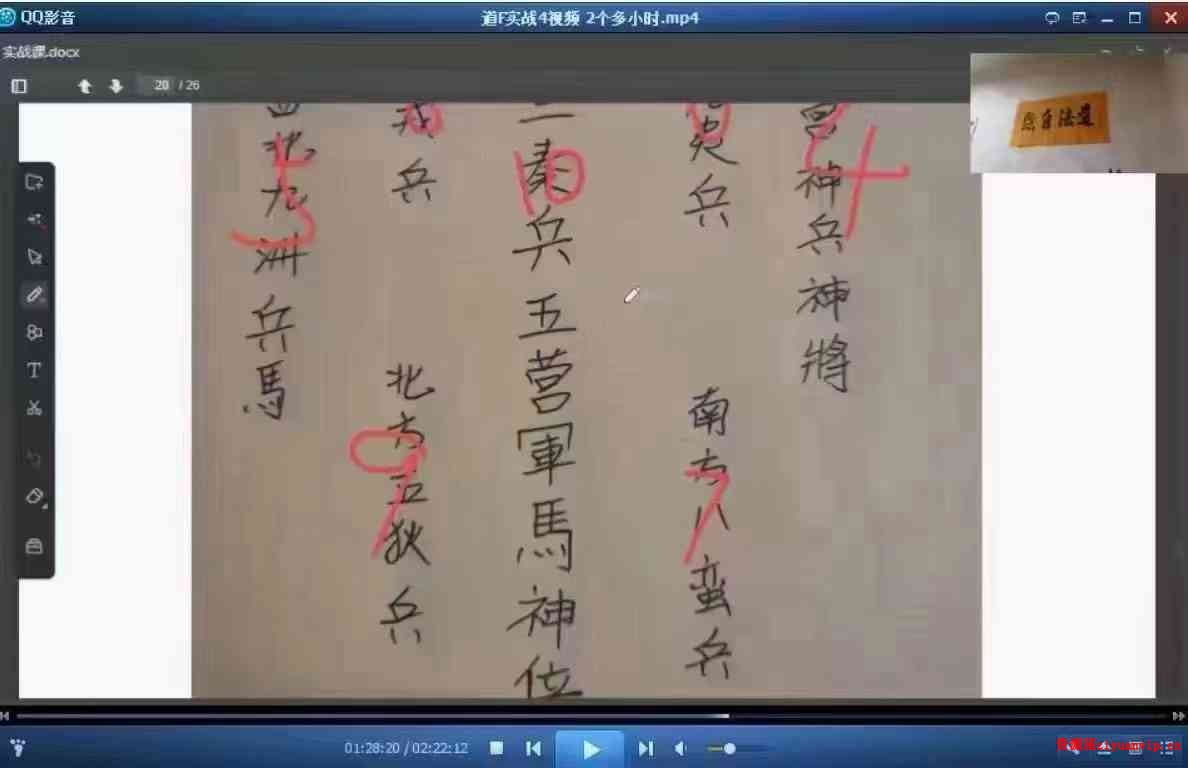 QQ影音
道F实战4视频 2个多小时.mp4
实战课.docx
20 / 26
道法自然
宫神兵神將
炎兵
南方八蛮兵
三秦兵五营軍馬神位
戎兵
北方五狄兵
四北九洲兵馬
01:28:20 / 02:22:12